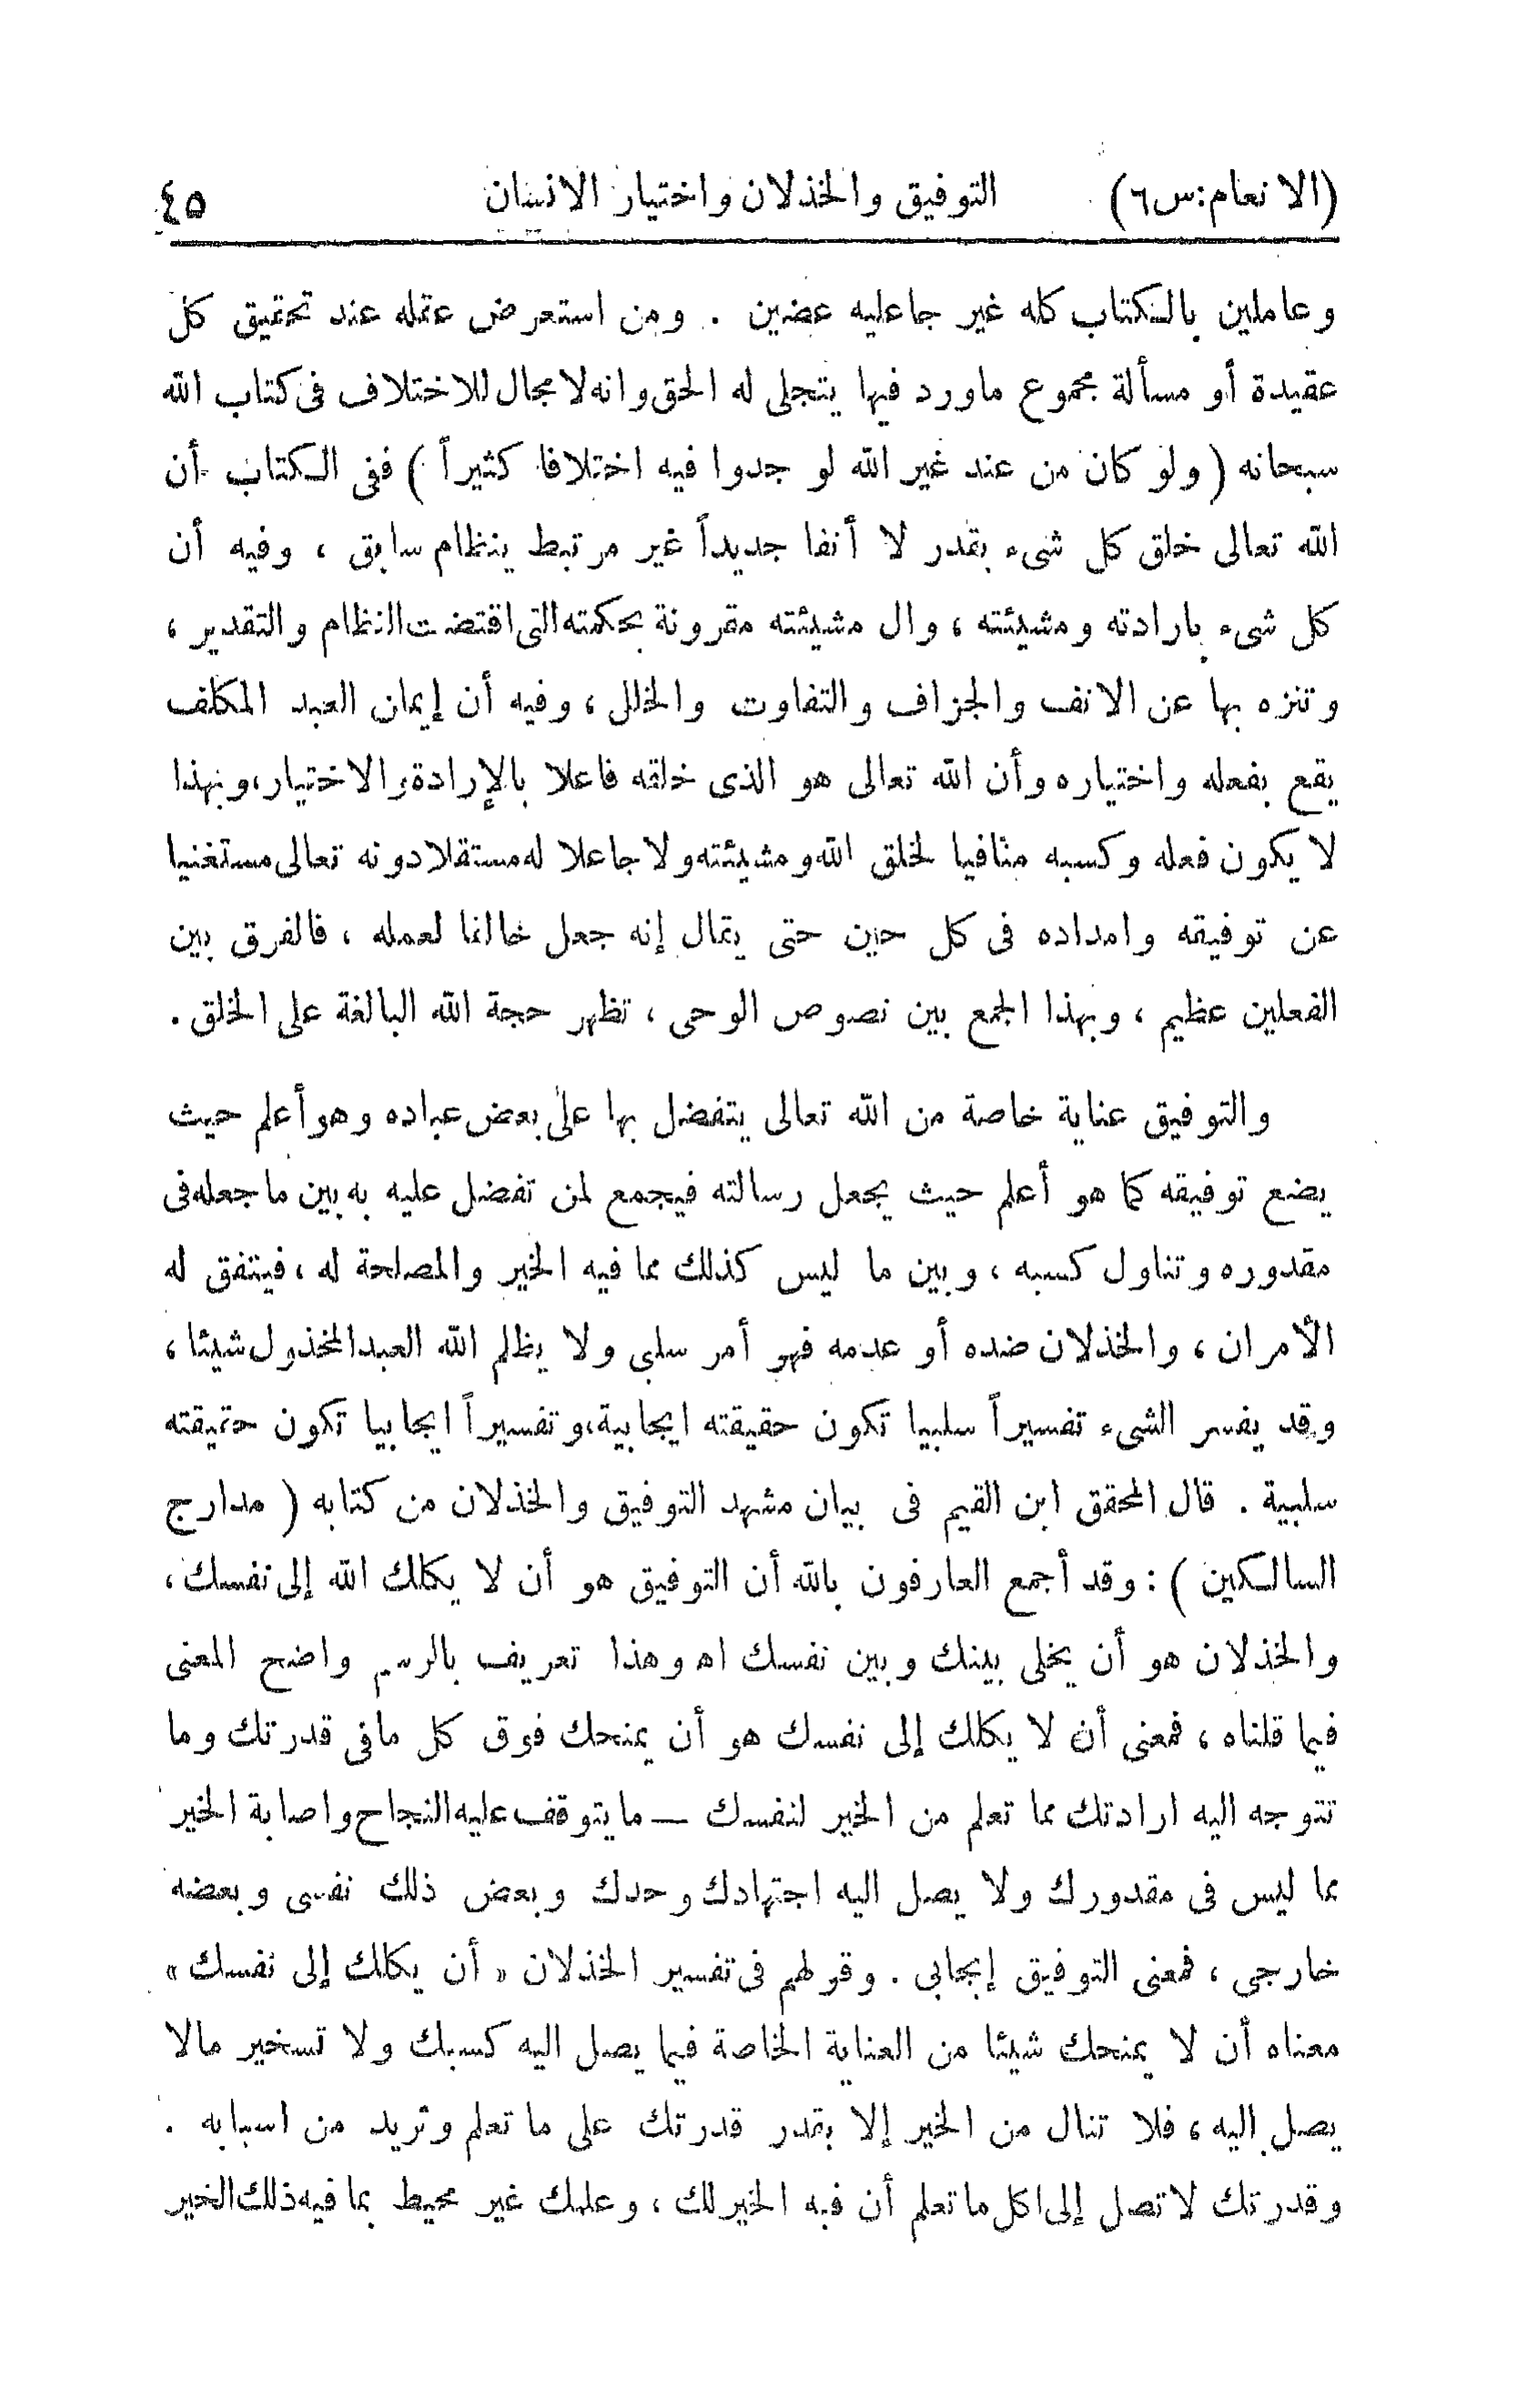 (الانعام:س٦) التوفيق والخذلان واختيار الانسان ٤٥
وعاملين بالكتاب كله غير جاعليه عضين . ومن استعرض عقله عند تحقيق كل
عقيدة أو مسألة مجموع ماورد فيها يتجلى له الحق وانه لا مجال للاختلاف فى كتاب الله
سبحانه ( ولو كان من عند غير الله لو جدوا فيه اختلافا كثيراً ) ففى الكتاب أن
الله تعالى خلق كل شىء بقدر لا أنفا جديداً غير مرتبط بنظام سابق ، وفيه أن
كل شىء بارادته ومشيئته ، وال مشيئته مقرونة بحكمته التى اقتضت النظام والتقدير ،
وتنزه بها عن الانف والجزاف والتفاوت والخلل ، وفيه أن إيمان العبد المكلف
يقع بفعله واختياره وأن الله تعالى هو الذى خلقه فاعلا بالإرادة والاختيار، وبهذا
لا يكون فعله وكسبه منافيا لخلق الله ومشيئته ولا جاعلا له مستقلا دونه تعالى مستغنيا
عن توفيقه وامداده فى كل حين حتى يقال إنه جعل خالقا لعمله ، فالفرق بين
الفعلين عظيم ، وبهذا الجمع بين نصوص الوحى ، تظهر حجة الله البالغة على الخلق .
والتوفيق عناية خاصة من الله تعالى يتفضل بها على بعض عباده وهو أعلم حيث
يضع توفيقه كما هو أعلم حيث يجعل رسالته فيجمع لمن تفضل عليه به بين ما جعله فى
مقدوره وتناول كسبه ، وبين ما ليس كذلك مما فيه الخير والمصلحة له ، فيتفق له
الأمران ، والخذلان ضده أو عدمه فهو أمر سلبى ولا يظلم الله العبد المخذول شيئا ،
وقد يفسر الشىء تفسيراً سلبيا تكون حقيقته ايجابية، وتفسيراً ايجابيا تكون حقيقته
سلبية . قال المحقق ابن القيم فى بيان مشهد التوفيق والخذلان من كتابه ( مدارج
السالكين ) : وقد أجمع العارفون بالله أن التوفيق هو أن لا يكلك الله إلى نفسك ،
والخذلان هو أن يخلى بينك وبين نفسك اه وهذا تعريف بالرسم واضح المعنى
فيما قلناه ، فمعنى أن لا يكلك إلى نفسك هو أن يمنحك فوق كل مافى قدرتك وما
تتوجه اليه ارادتك مما تعلم من الخير لنفسك — ما يتوقف عليه النجاح واصابة الخير
مما ليس فى مقدورك ولا يصل اليه اجتهادك وحدك وبعض ذلك نفسى وبعضه
خارجى ، فمعنى التوفيق إيجابى . وقولهم فى تفسير الخذلان « أن يكلك إلى نفسك »
معناه أن لا يمنحك شيئا من العناية الخاصة فيما يصل اليه كسبك ولا تسخير مالا
يصل اليه ، فلا تنال من الخير إلا بقدر قدرتك على ما تعلم وتريد من اسبابه .
وقدرتك لا تصل إلى كل ما تعلم أن فيه الخير لك ، وعلمك غير محيط بما فيه ذلك الخير